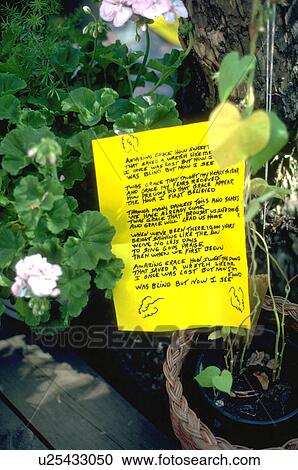 AMAZING GRACE HOW SWEET
THAT SAVED A WRETCH LIKE ME
I ONCE WAS LOST BUT NOW I
WAS BLIND BUT NOW I SEE
TWAS GRACE THAT TAUGHT MY HEART TO FEAR
AND GRACE MY FEARS RELIEVED
HOW PRECIOUS DID THAT GRACE APPEAR
THE HOUR I FIRST BELIEVED
THROUGH MANY DANGERS TOILS AND SNARES
WE HAVE ALREADY COME
TWAS GRACE THAT BROUGHT US
AND GRACE WILL LEAD US HOME
WHEN WE'VE BEEN THERE 10,000 YEARS
BRIGHT SHINING LIKE THE SUN
WE'VE NO LESS DAYS
TO SING GODS PRAISE
THEN WHEN WE FIRST BEGUN
AMAZING GRACE HOW SWEET THE SOUND
THAT SAVED A WRETCH LIKE ME
I ONCE WAS LOST BUT NOW I'M
FOUND
WAS BLIND BUT NOW I SEE
© fotosearch
u25433050 fotosearch.com